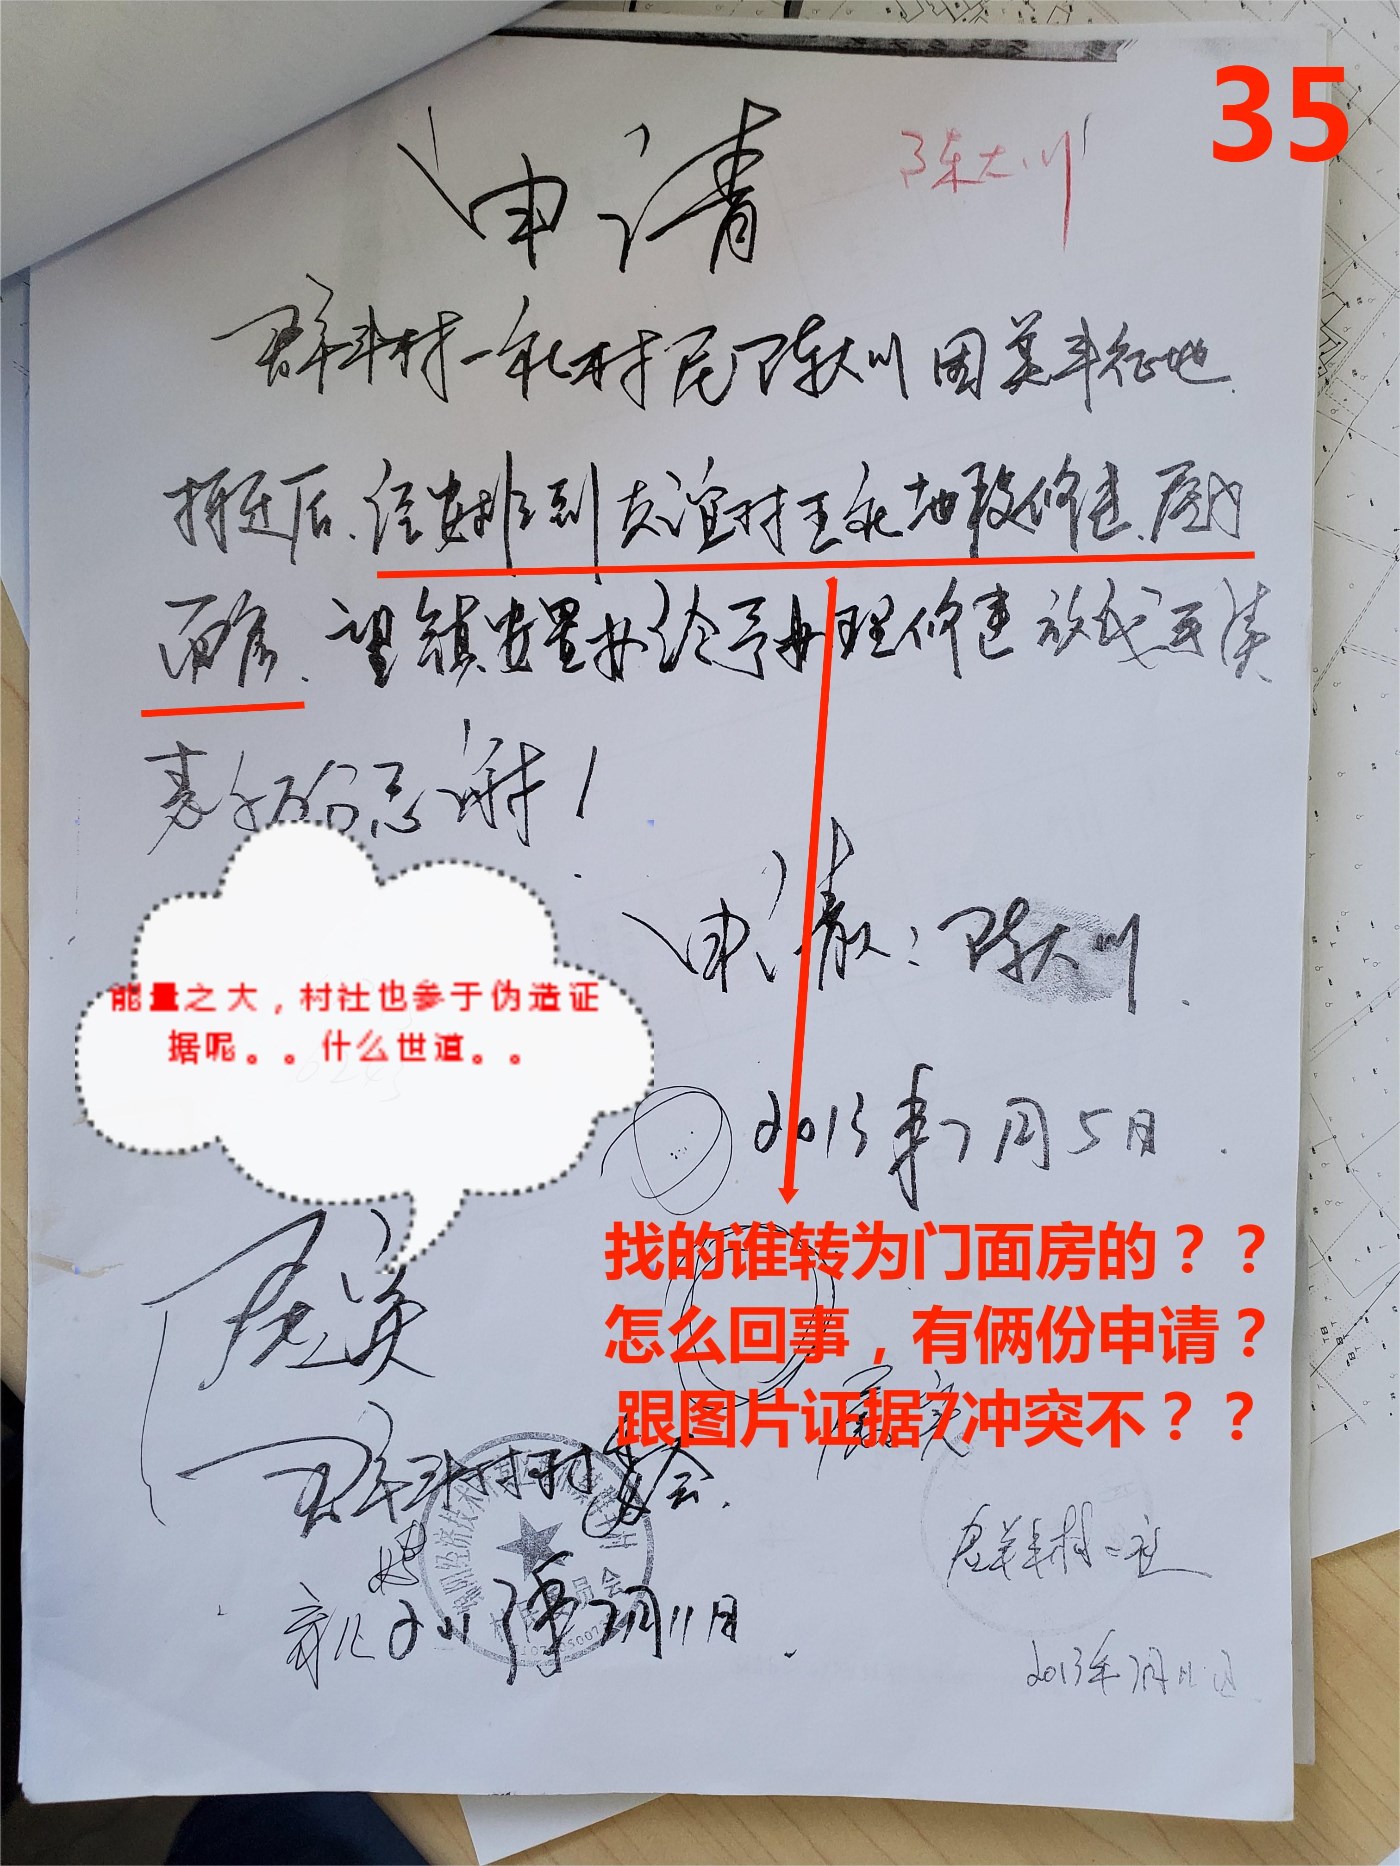 35
申请
陈大川
群丰村一社村民陈大川因美丰征地
拆迁后、经安排到友谊村五社地段修建、居门
面房、望镇安置办给予办理修建放线手续
表示万分感谢！
申请人：陈大川
能量之大，村社也参于伪造证
据呢。。什么世道。。
2013年7月5日
找的谁转为门面房的？？
怎么回事，有俩份申请？
跟图片证据7冲突不？？
情况属实
群丰村村委会
群丰村一社
2013年7月11日
2013年7月11日